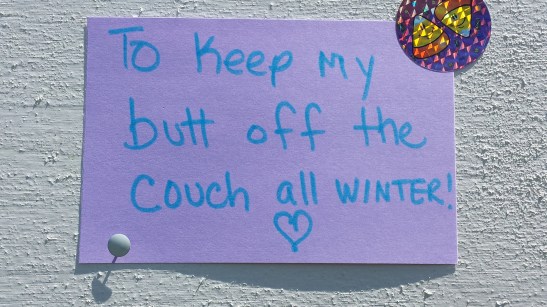 To Keep My
butt off the
couch all WINTER!